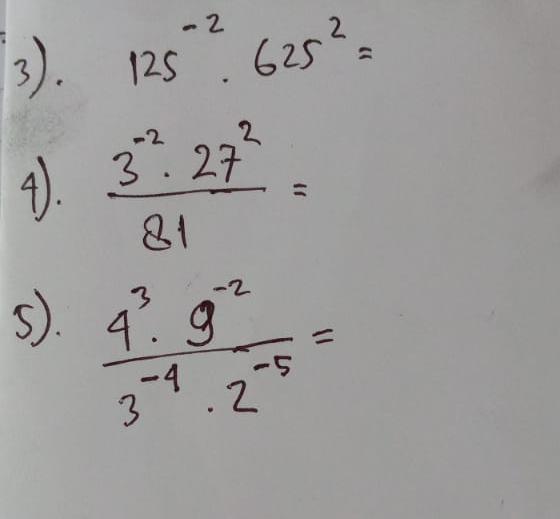 3). 125⁻² . 625² =
4). 3⁻² . 27² / 81 =
5). 4³ . 9⁻² / 3⁻⁴ . 2⁻⁵ =